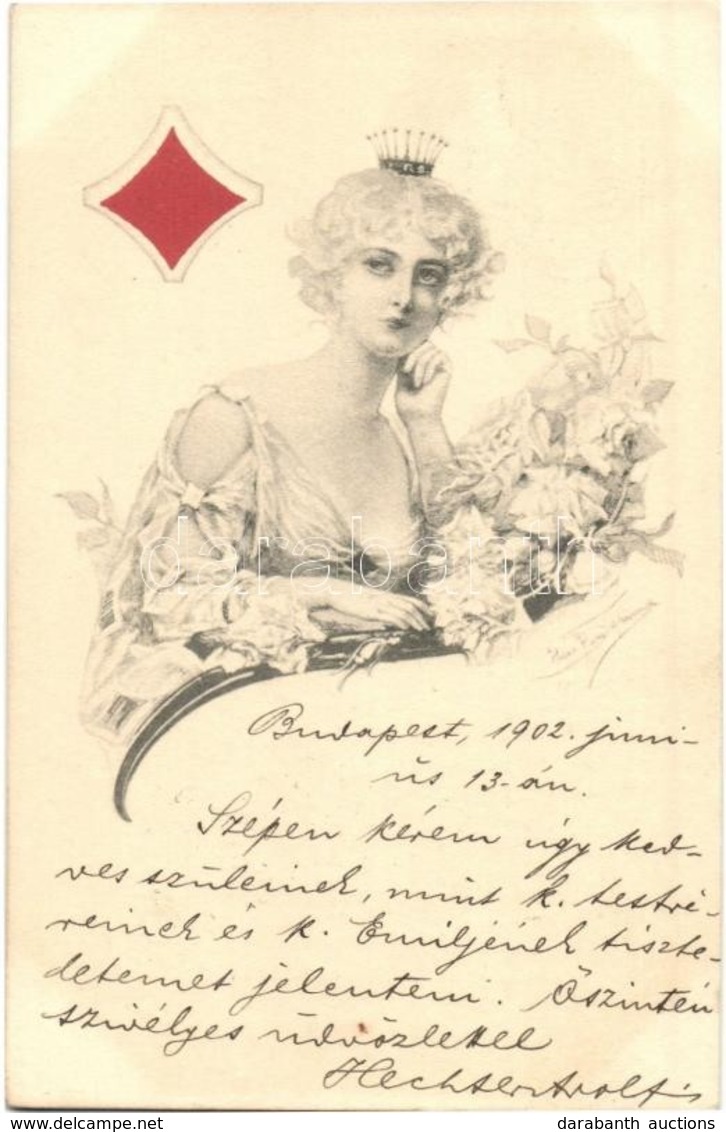 darabanth
Budapest, 1902. juni-
us 13-án.
Szépen kérem úgy ked-
ves szüleinek, mint k. testvé-
reinek és k. Emiljének tiszte-
letemet jelenteni. Őszintén
szivélyes üdvözlettel
Hechter
darabanth auctions